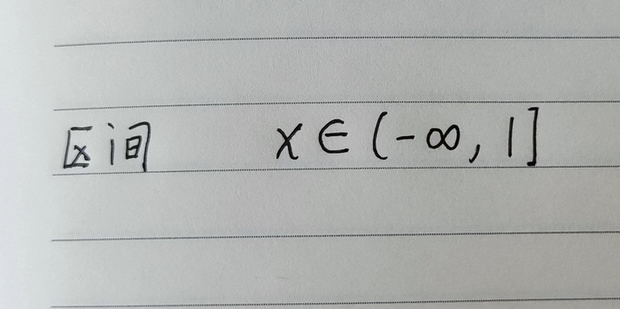 区间 x∈(-∞, 1]